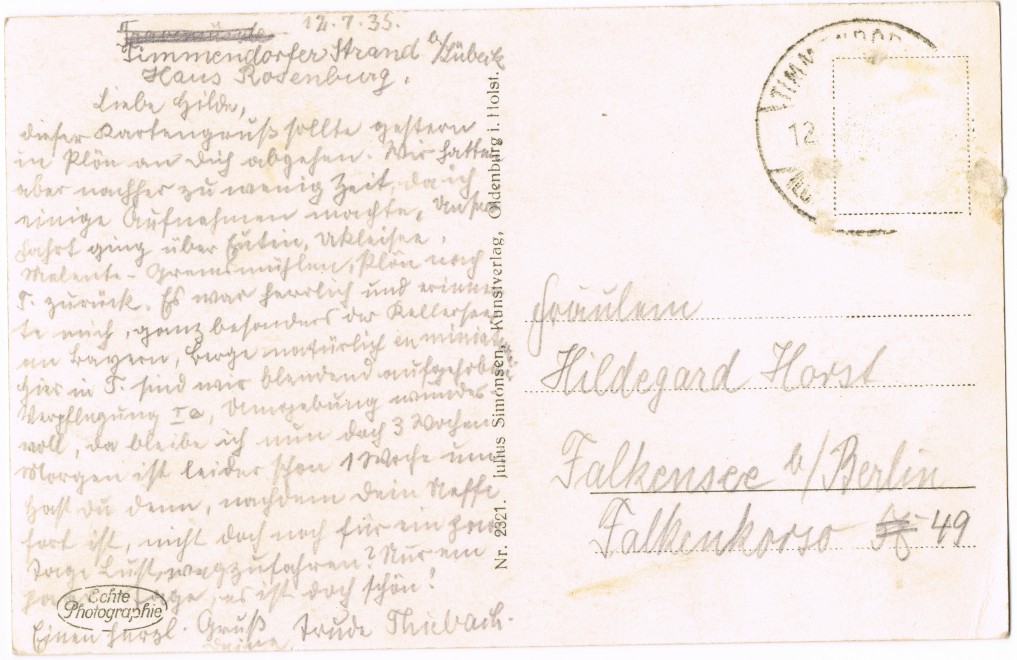 12.7.35.
Timmendorfer Strand b/Lübeck
Haus Rosenburg.
Liebe Hilde,
dieser Kartengruß sollte gestern
in Plön an Dich abgehen. Wir hatten
aber nachher zu wenig Zeit, da ich
einige Aufnahmen machte, Unsere
Fahrt ging über Eutin, Ukleisee,
Malente-Gremsmühlen, Plön nach
T. zurück. Es war herrlich und erinner
te mich, ganz besonders der Kellersee
an Bayern, Berge natürlich in miniatur
Hier in T. sind wir blendend aufgehoben
Verpflegung Ia, Umgebung wunder
voll, da bleibe ich nun doch 3 Wochen
Morgen ist leider schon 1 Woche um
Hast Du denn, nachdem Dein Neffe
fort ist, nicht doch noch für ein paar
Tage Lust, wegzufahren? Nur ein
paar Tage, es ist doch schön!
Einen herzl. Gruß
Deine Trude Thiebach.
Echte
Photographie
Nr. 2321. Julius Simonsen, Kunstverlag, Oldenburg i. Holst.
TIMM
12
Fräulein
Hildegard Horst
Falkensee b/Berlin
Falkenkorso 49